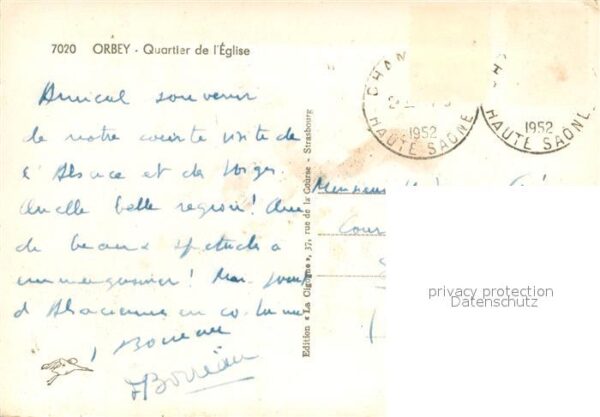 7020 ORBEY - Quartier de l'Église
Amical souvenir
de notre courte visite de
l'Alsace et des Vosges.
Quelle belle région! Que
de beaux spectacles à
emmagasiner! Mais point
d'Alsacienne en costume
Boireau
Edition « La Cigogne », 37, rue de la Course - Strasbourg
CHAM
1952
HAUTE SAONE
CH
1952
HAUTE SAONE
Monsieur
Cour
privacy protection
Datenschutz